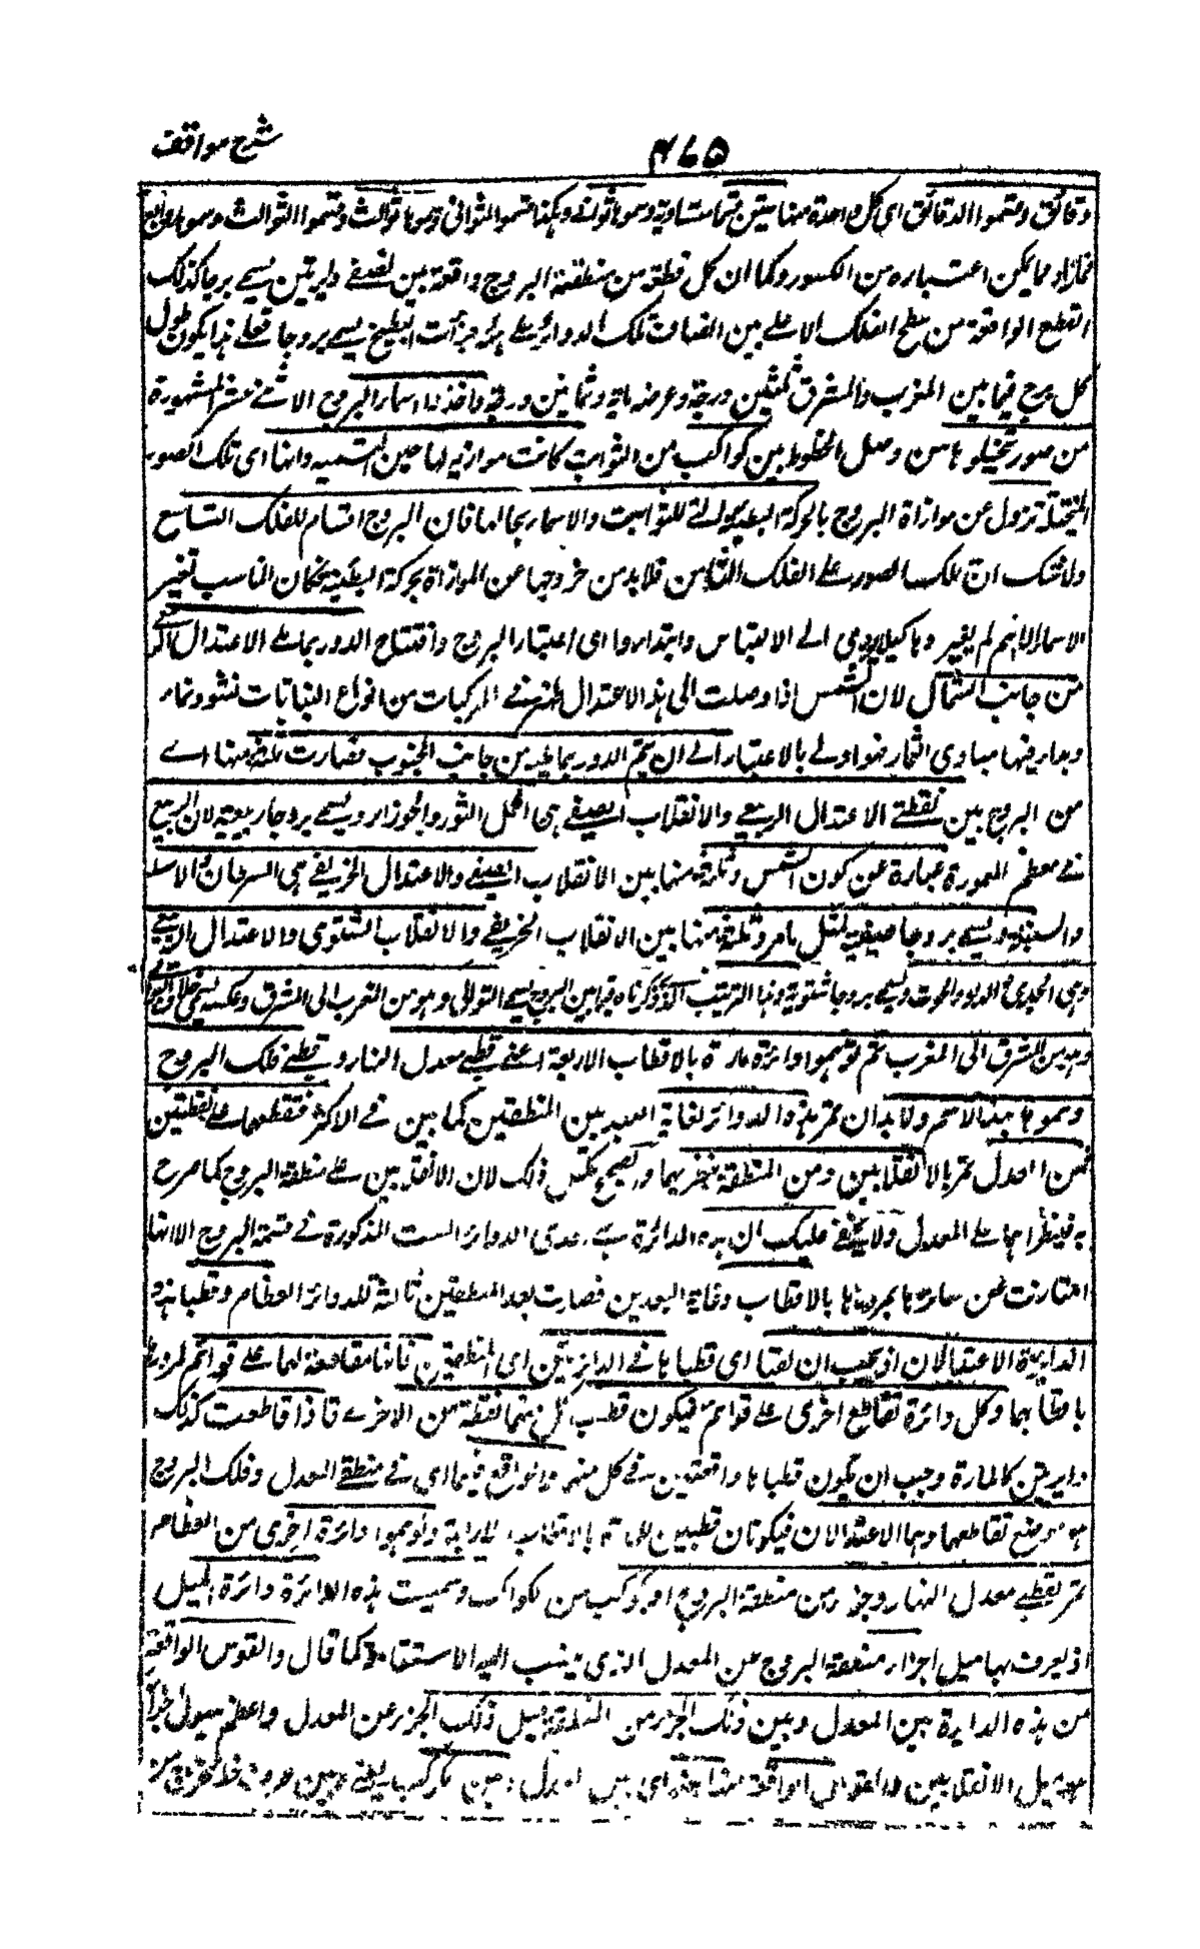 شرح مواقف
۴۶۵
دقائق وقسموا الدقائق اى كل واحدة منها ستين قسما متساوية وسموها ثوانى وهكذا قسموا الثوانى وسموها ثوالث وقسموا الثوالث وسموها روابع
فما زاد مما يمكن اعتباره من الكسور وكما ان كل قطعة من منطقة البروج واقعة بين نصفى دايرتين يسمى برجا كذلك
القطع الواقعة من سطح الفلك الاعلى بين انصاف تلك الدوائر على هيئة جزئات البطيخ يسمى بروجا فعلى هذا يكون طول
كل برج فيما بين المغرب والمشرق ثلثين درجة وعرضه مائة وثمانين درجة واخذوا اسماء البروج الاثنى عشر المشهورة
من صور تخيلوها من وصل الخطوط بين كواكب من الثوابت كانت موازنة لها حين التسمية وانها اى تلك الصور
المتخيلة تزول عن موازاة البروج بالحركة البطيئة التى للثوابت والاسماء بحالها فان البروج اقسام للفلك التاسع
ولا شك ان تلك الصور على الفلك الثامن فلا بد من خروجها عن الموازاة بحركة البطيئة فكان المناسب تغير
الاسماء الا انهم لم يغيروها كيلا يؤدى الى الالتباس وابتداؤها اى اعتبار البروج وافتتاح الدور بما على الاعتدال
من جانب الشمال لان الشمس اذا وصلت الى هذا الاعتدال ظهر فى المركبات من انواع النباتات نشو ونماء
وبدا فيها مبادى الثمار فهو اولى بالاعتبار الى ان يتم الدور بما يليه من جانب الجنوب فصارت ثلثة منها اى
من البروج بين نقطتى الاعتدال الربيعى والانقلاب الصيفى هى الحمل الثور والجوزاء ويسمى بروجا ربيعية لان الربيع
فى معظم المعمورة عبارة عن كون الشمس وثلثة منها بين الانقلاب الصيفى والاعتدال الخريفى هى السرطان والاسد
والسنبلة ويسمى بروجا صيفية لمثل ما مر وثلثة منها بين الانقلاب الخريفى والانقلاب الشتوى والاعتدال الربيعى
وهى الجدى الدلو والحوت ويسمى بروجا شتوية وهذا الترتيب الذى ذكرناه فيما بين البروج يسمى التوالى وهو من المغرب الى المشرق وعكسه يسمى خلاف التوالى
وهو من المشرق الى المغرب ثم توهموا دائرة مارة بالاقطاب الاربعة اعنى قطبى معدل النهار وقطبى فلك البروج
وسموها بهذا الاسم ولا بد ان تمر هذه الدوائر بغاية البعد بين المنطقتين كما بين فى الاكثر فتقطعها على نقطتين
فمن المعدل تمر بالانقلابين ومن المنطقة بنظيريهما والصحيح عكس ذلك لان الانقلابين على منطقة البروج كما صرح
به فنظيراهما على المعدل ولا يخفى عليك ان هذه الدائرة هى احدى الدوائر الست المذكورة فى قسمة البروج الا انها
امتازت عن سائرها بمرورها بالاقطاب وغاية البعدين فصارت بعد المنطقتين ثالثة للدوائر العظام وقطبا هذه
الدايرة الاعتدالان اذ يجب ان لقتا اى قطباها فى الدائرتين اى المنطقتين فانها مقاطعة لهما على قوائم لمرورها
باقطابهما وكل دائرة تقاطع اخرى على قوائم فيكون قطب كل منهما نقطة من الاخرى فاذا قاطعت كذلك
دايرتين كالمارة وجب ان يكون قطباها واقعتين فى كل منهما والواقع فيهما اى فى منطقتى المعدل وفلك البروج
هو موضع تقاطعهما وهما الاعتدالان فيكونان قطبين للمارة بالاقطاب الاربعة وتوهموا دائرة اخرى من العظام
تمر بقطبى معدل النهار وجزء من منطقة البروج او كوكب من الكواكب وسميت هذه الدائرة دائرة الميل
اذ يعرف بها ميل اجزاء منطقة البروج عن المعدل الذى ينسب اليه الاستقامة كما قال والقوس الواقعة
من هذه الدايرة بين المعدل وبين ذلك الجزء من المنطقة ميل ذلك الجزء عن المعدل واعظم ميول
ميل الانقلابين والقوس الواقعة منها اى بين المعدل وبين الكوكب